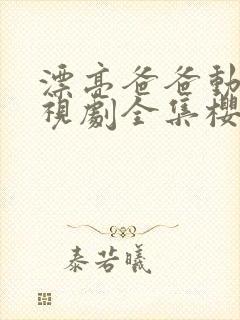 漂亮爸爸動
視劇全集櫻
泰若曦